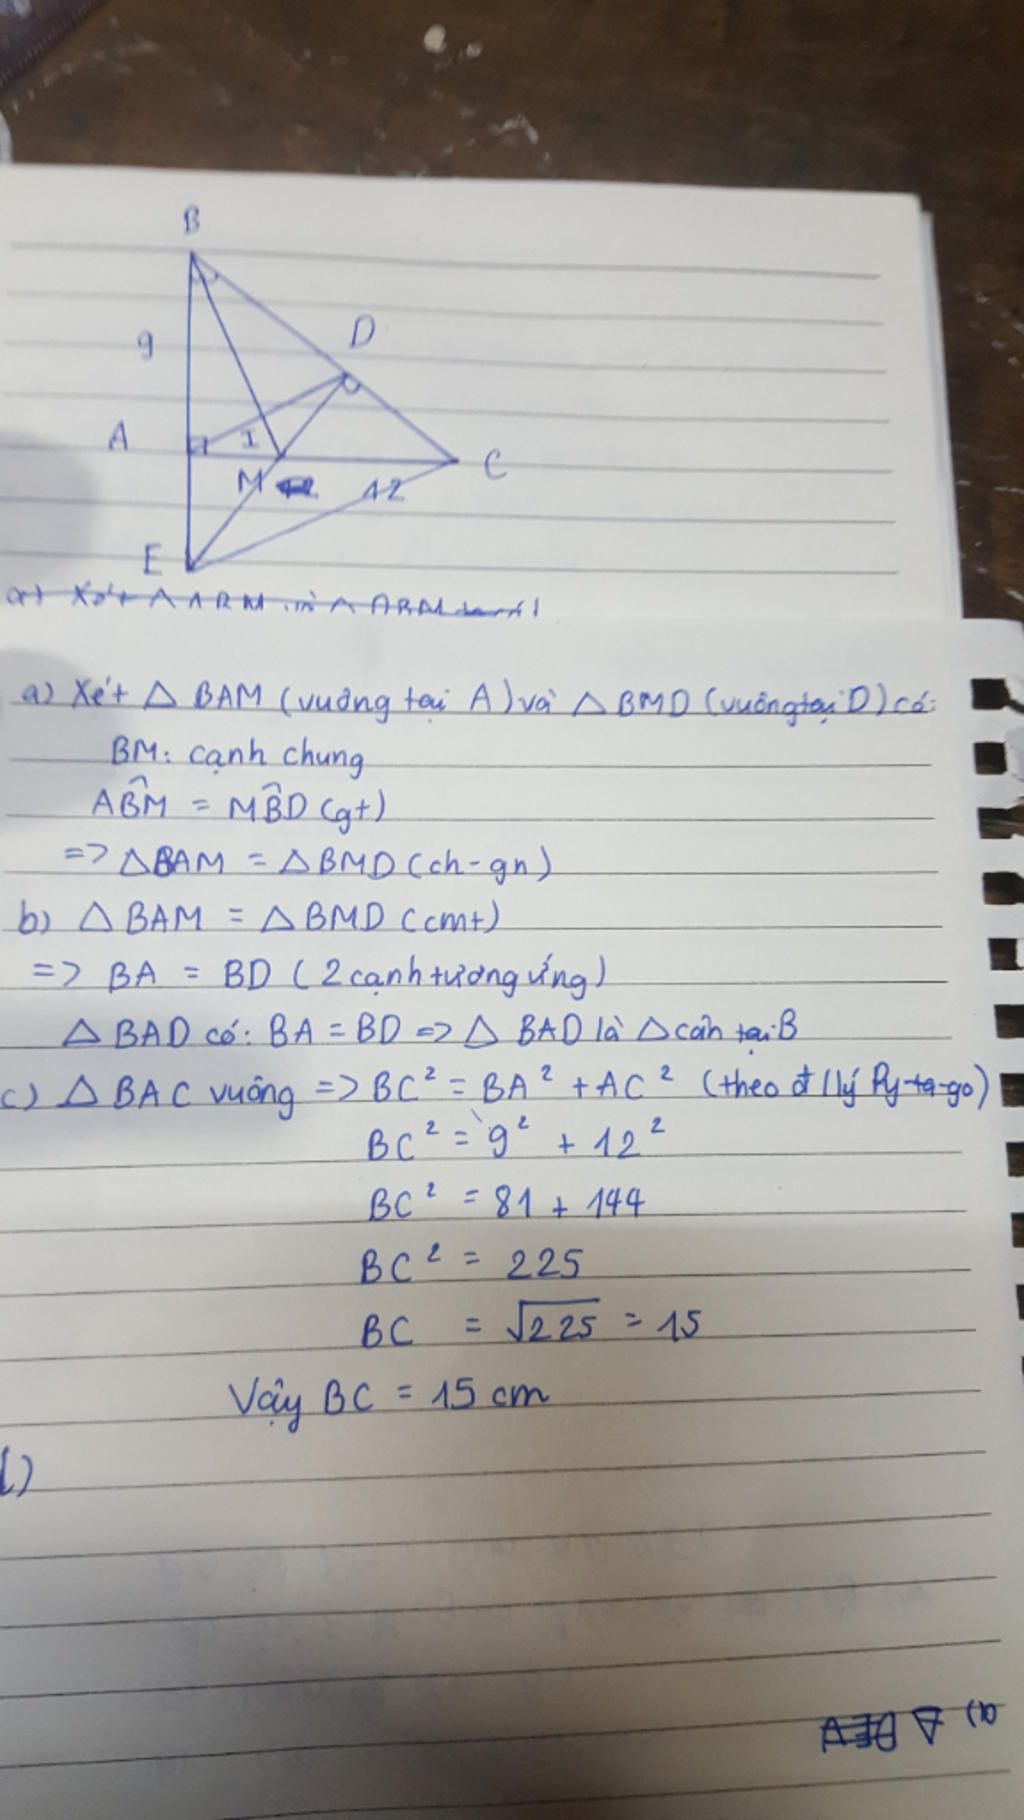 B
D
9
A
I
C
M
12
E
a) Xét △ ABM và △ ABM
a) Xét △ BAM (vuông tại A) và △ BMD (vuông tại D) có:
BM: cạnh chung
AB̂M = MB̂D (gt)
=> △BAM = △BMD (ch-gn)
b) △ BAM = △BMD (cmt)
=> BA = BD (2 cạnh tương ứng)
△ BAD có: BA = BD => △ BAD là △ cân tại B
c) △ BAC vuông => BC² = BA² + AC² (theo đ/lý Py-ta-go)
BC² = 9² + 12²
BC² = 81 + 144
BC² = 225
BC = √225 = 15
Vậy BC = 15 cm
a) △